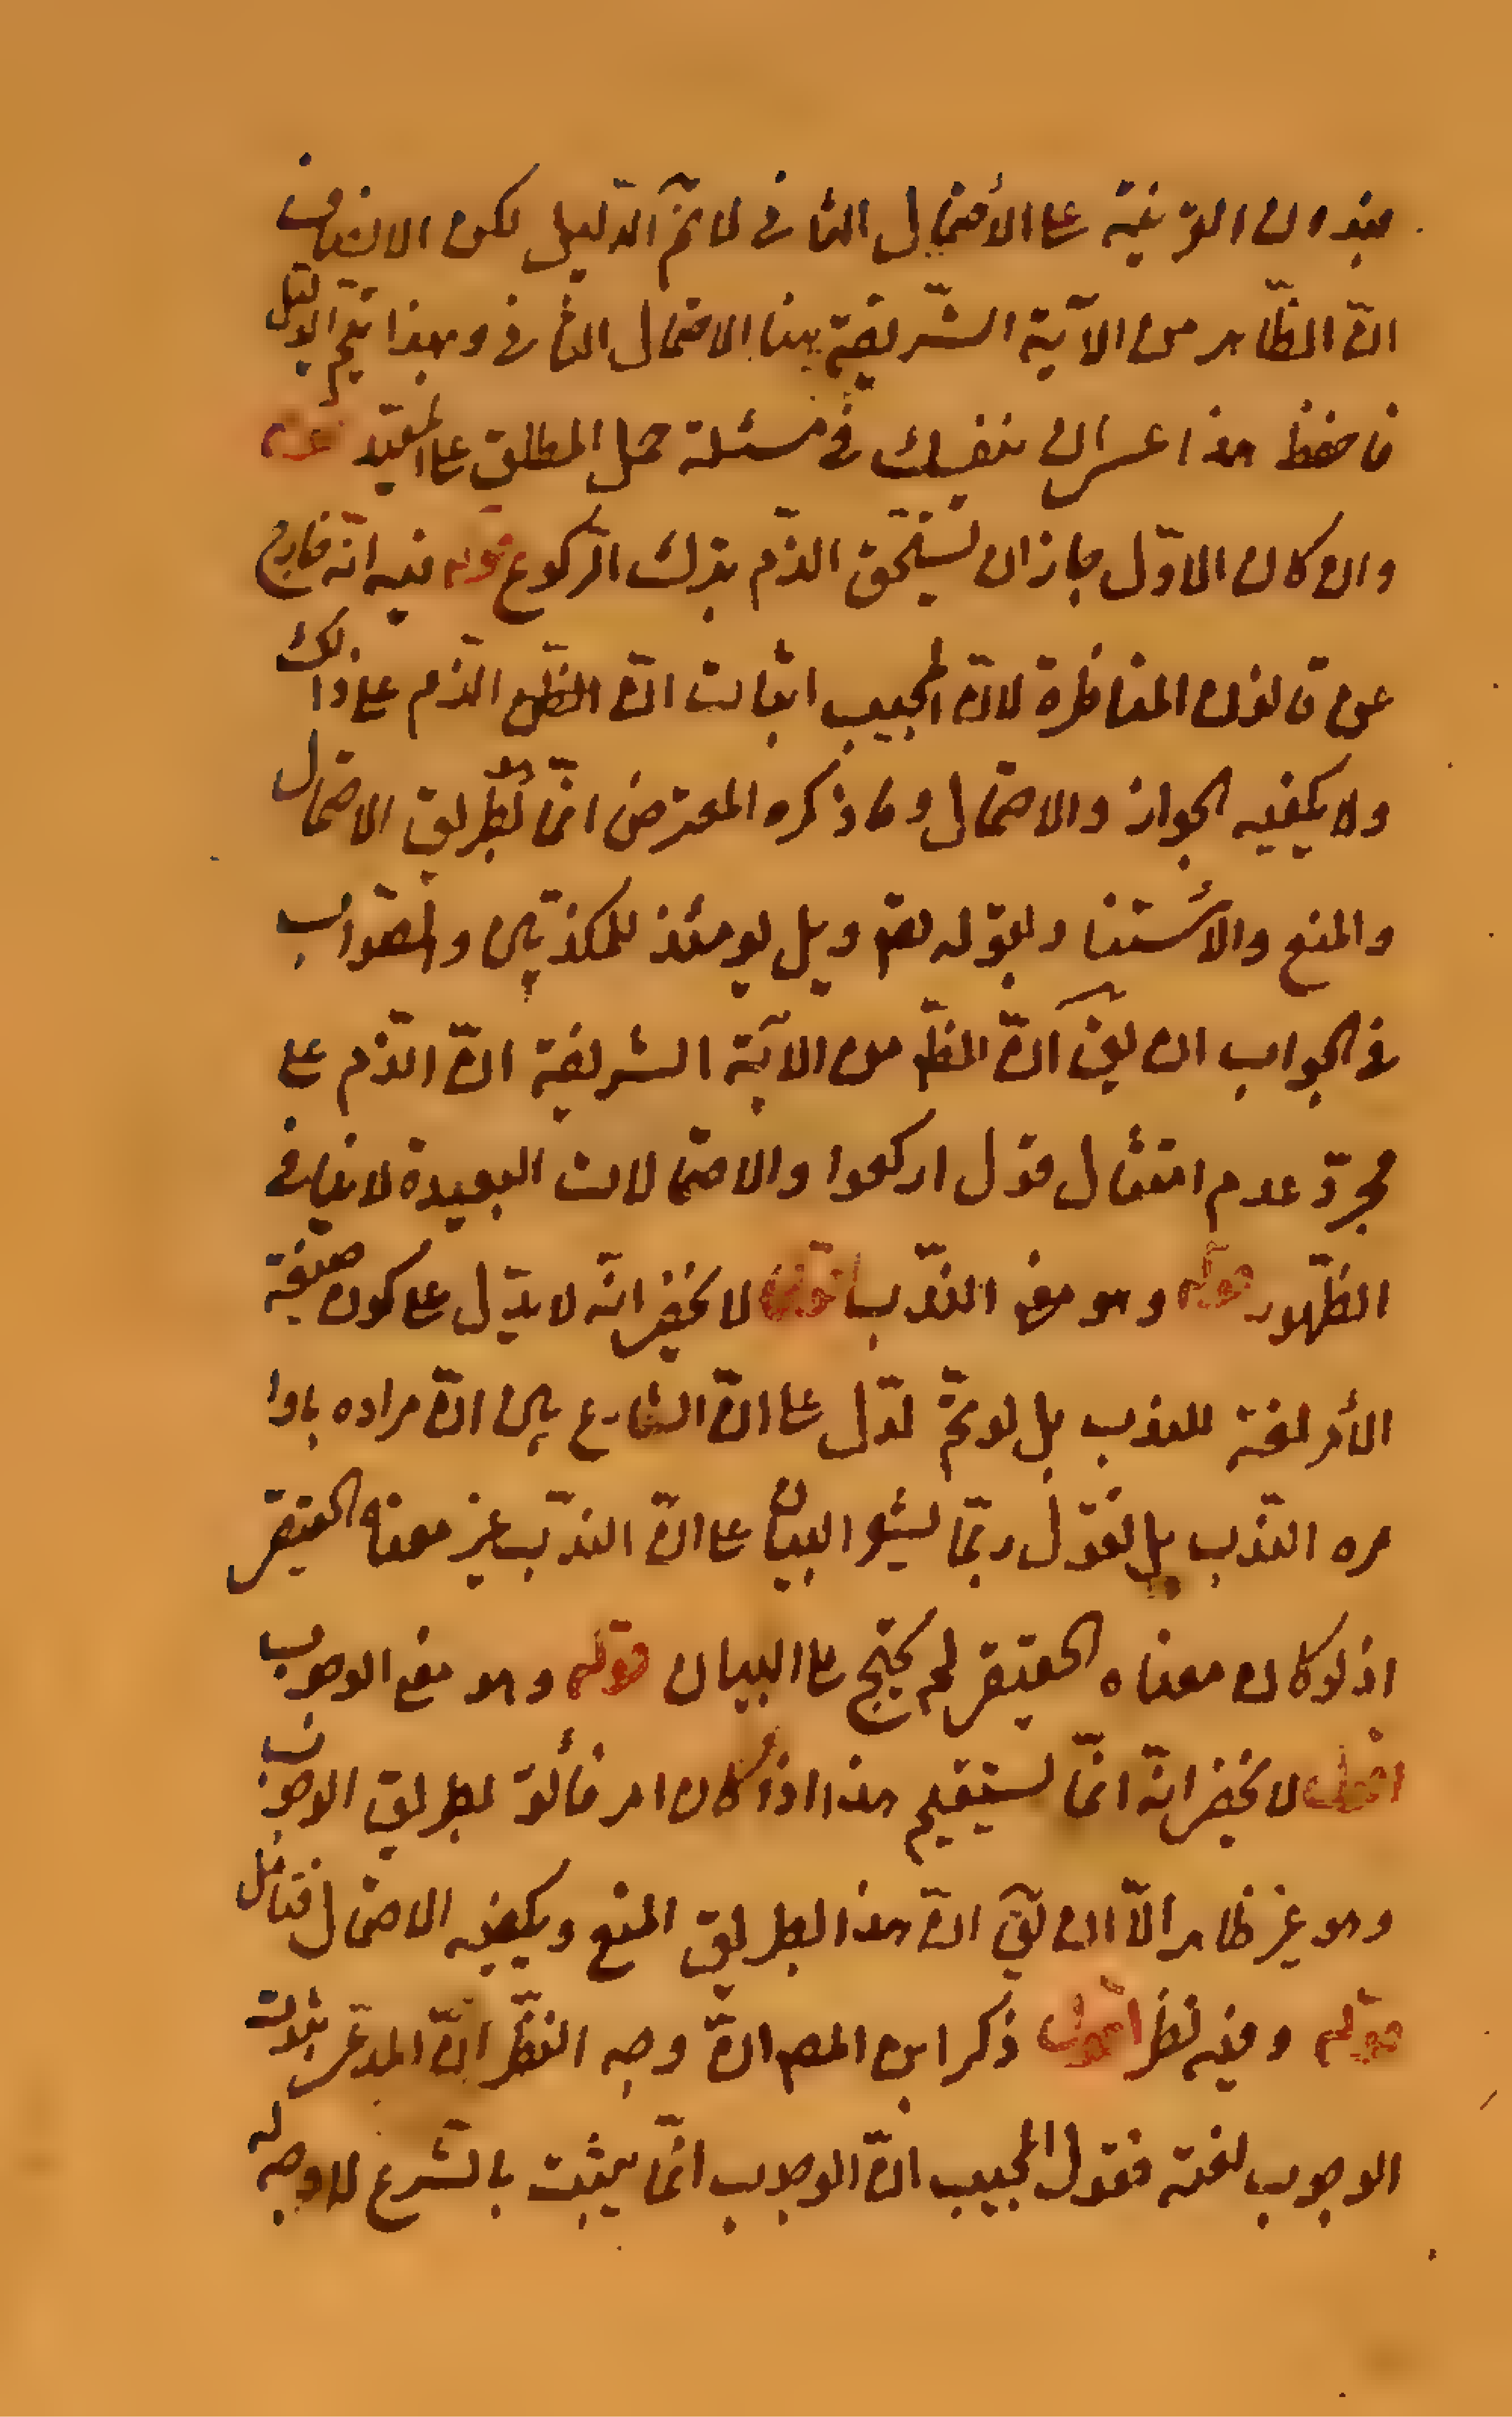 فبدون القرينة على الأحتمال الثانى لا يتم الدّليل لكن الانصاف
انّ الظّاهر من الآية الشّريفة هنا الاحتمال الثانى وبهذا يتم الدليل
فاحفظ هذا عسى ان ينفعك فى مسئلة حمل المطلق على المقيّد قوله
وان كان الاوّل جاز ان يستحقّ الذّم بترك الرّكوع قوله فيه انّه خارج
عن قانون المناظرة لانّ المجيب اثبات انّ الظم الذّم على ذلك
ولا يكفيه الجواز والاحتمال وما ذكره المعترض انّما هو بطريق الاحتمال
والمنع والأستناد بقوله تعم ويل يومئذ للمكذّبين والصّواب
فى الجواب ان يقّ انّ الظم من الآية الشريفة انّ الذّم على
مجرّد عدم امتثال قول اركعوا والاحتمالات البعيدة لا ينافى
الظّهور قوله وهو معنى النّدب اقول لا يخفى انّه لا يدّل على كون صيغة
الأمر لغة للندب بل لو تمّ لدّل على انّ الشارع بيّن انّ مراده باوا
مره النّدب بل نقول ربّما يشعر البيان على انّ النّدب غير معناه الحقيقى
اذ لو كان معناه الحقيقى لم يحتج على البيان قوله وهو معنى الوجوب
اقول لا يخفى انّه انّما يستقيم هذا اذا كان امر فأتوا بطريق الوجوب
وهو غير ظاهر الّا ان يقّ انّ هذا بطريق المنع ويكفيه الاحتمال فتامل
قوله وفيه نظر اقول ذكر ابن المصم انّ وجه النّظر انّ المدّعى ثبوت
الوجوب لغة فقول المجيب انّ الوجوب انّما يثبت بالشّرع لا وجه له